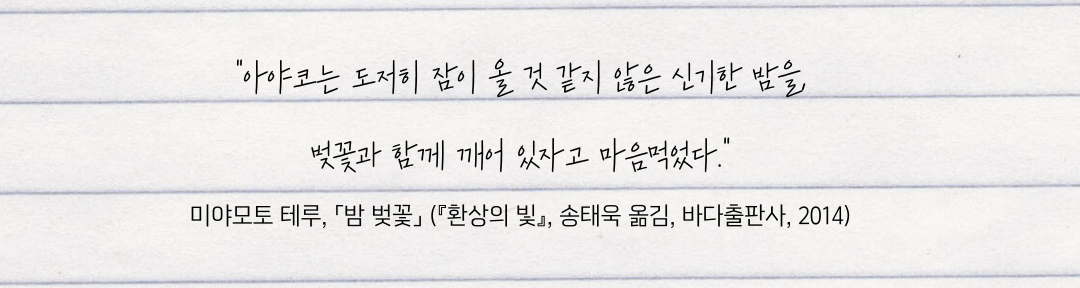 "아야코는 도저히 잠이 올 것 같지 않은 신기한 밤을,
벚꽃과 함께 깨어 있자고 마음먹었다."
미야모토 테루, 「밤 벚꽃」 (『환상의 빛』, 송태욱 옮김, 바다출판사, 2014)